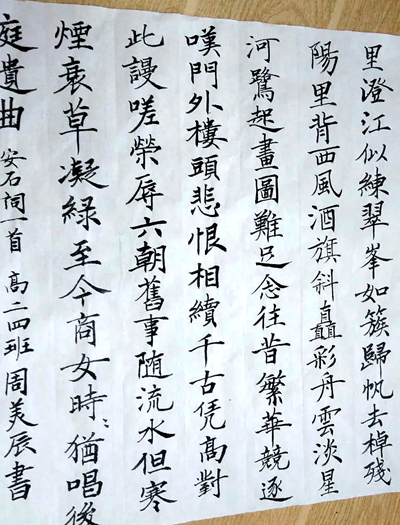 里澄江似練翠峯如簇歸帆去棹殘
陽里背西風酒旗斜矗彩舟雲淡星
河鷺起畫圖難足念往昔繁華競逐
嘆門外樓頭悲恨相續千古凭高對
此謾嗟榮辱六朝舊事随流水但寒
煙衰草凝綠至今商女時〻猶唱後
庭遺曲 安石词一首 高二四班 周美辰書